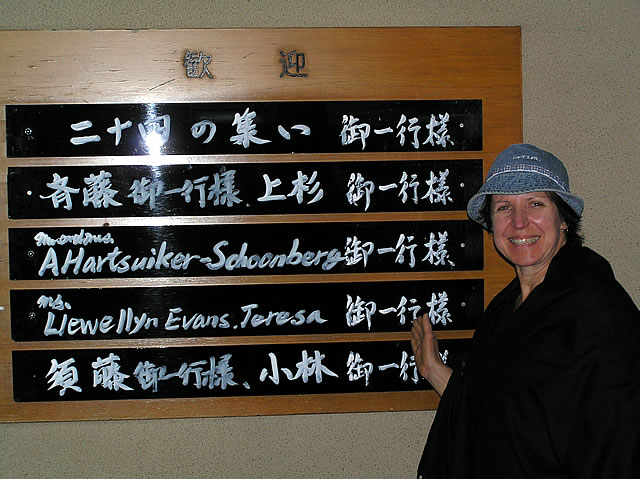 歓迎
二十四の集い 御一行様
斉藤御一行様 上杉 御一行様
Mr.and Ms.
A Hartsuiker-Schoonberg 御一行様
Ms.
Llewellyn Evans. Teresa 御一行様
須藤御一行様、小林 御一行